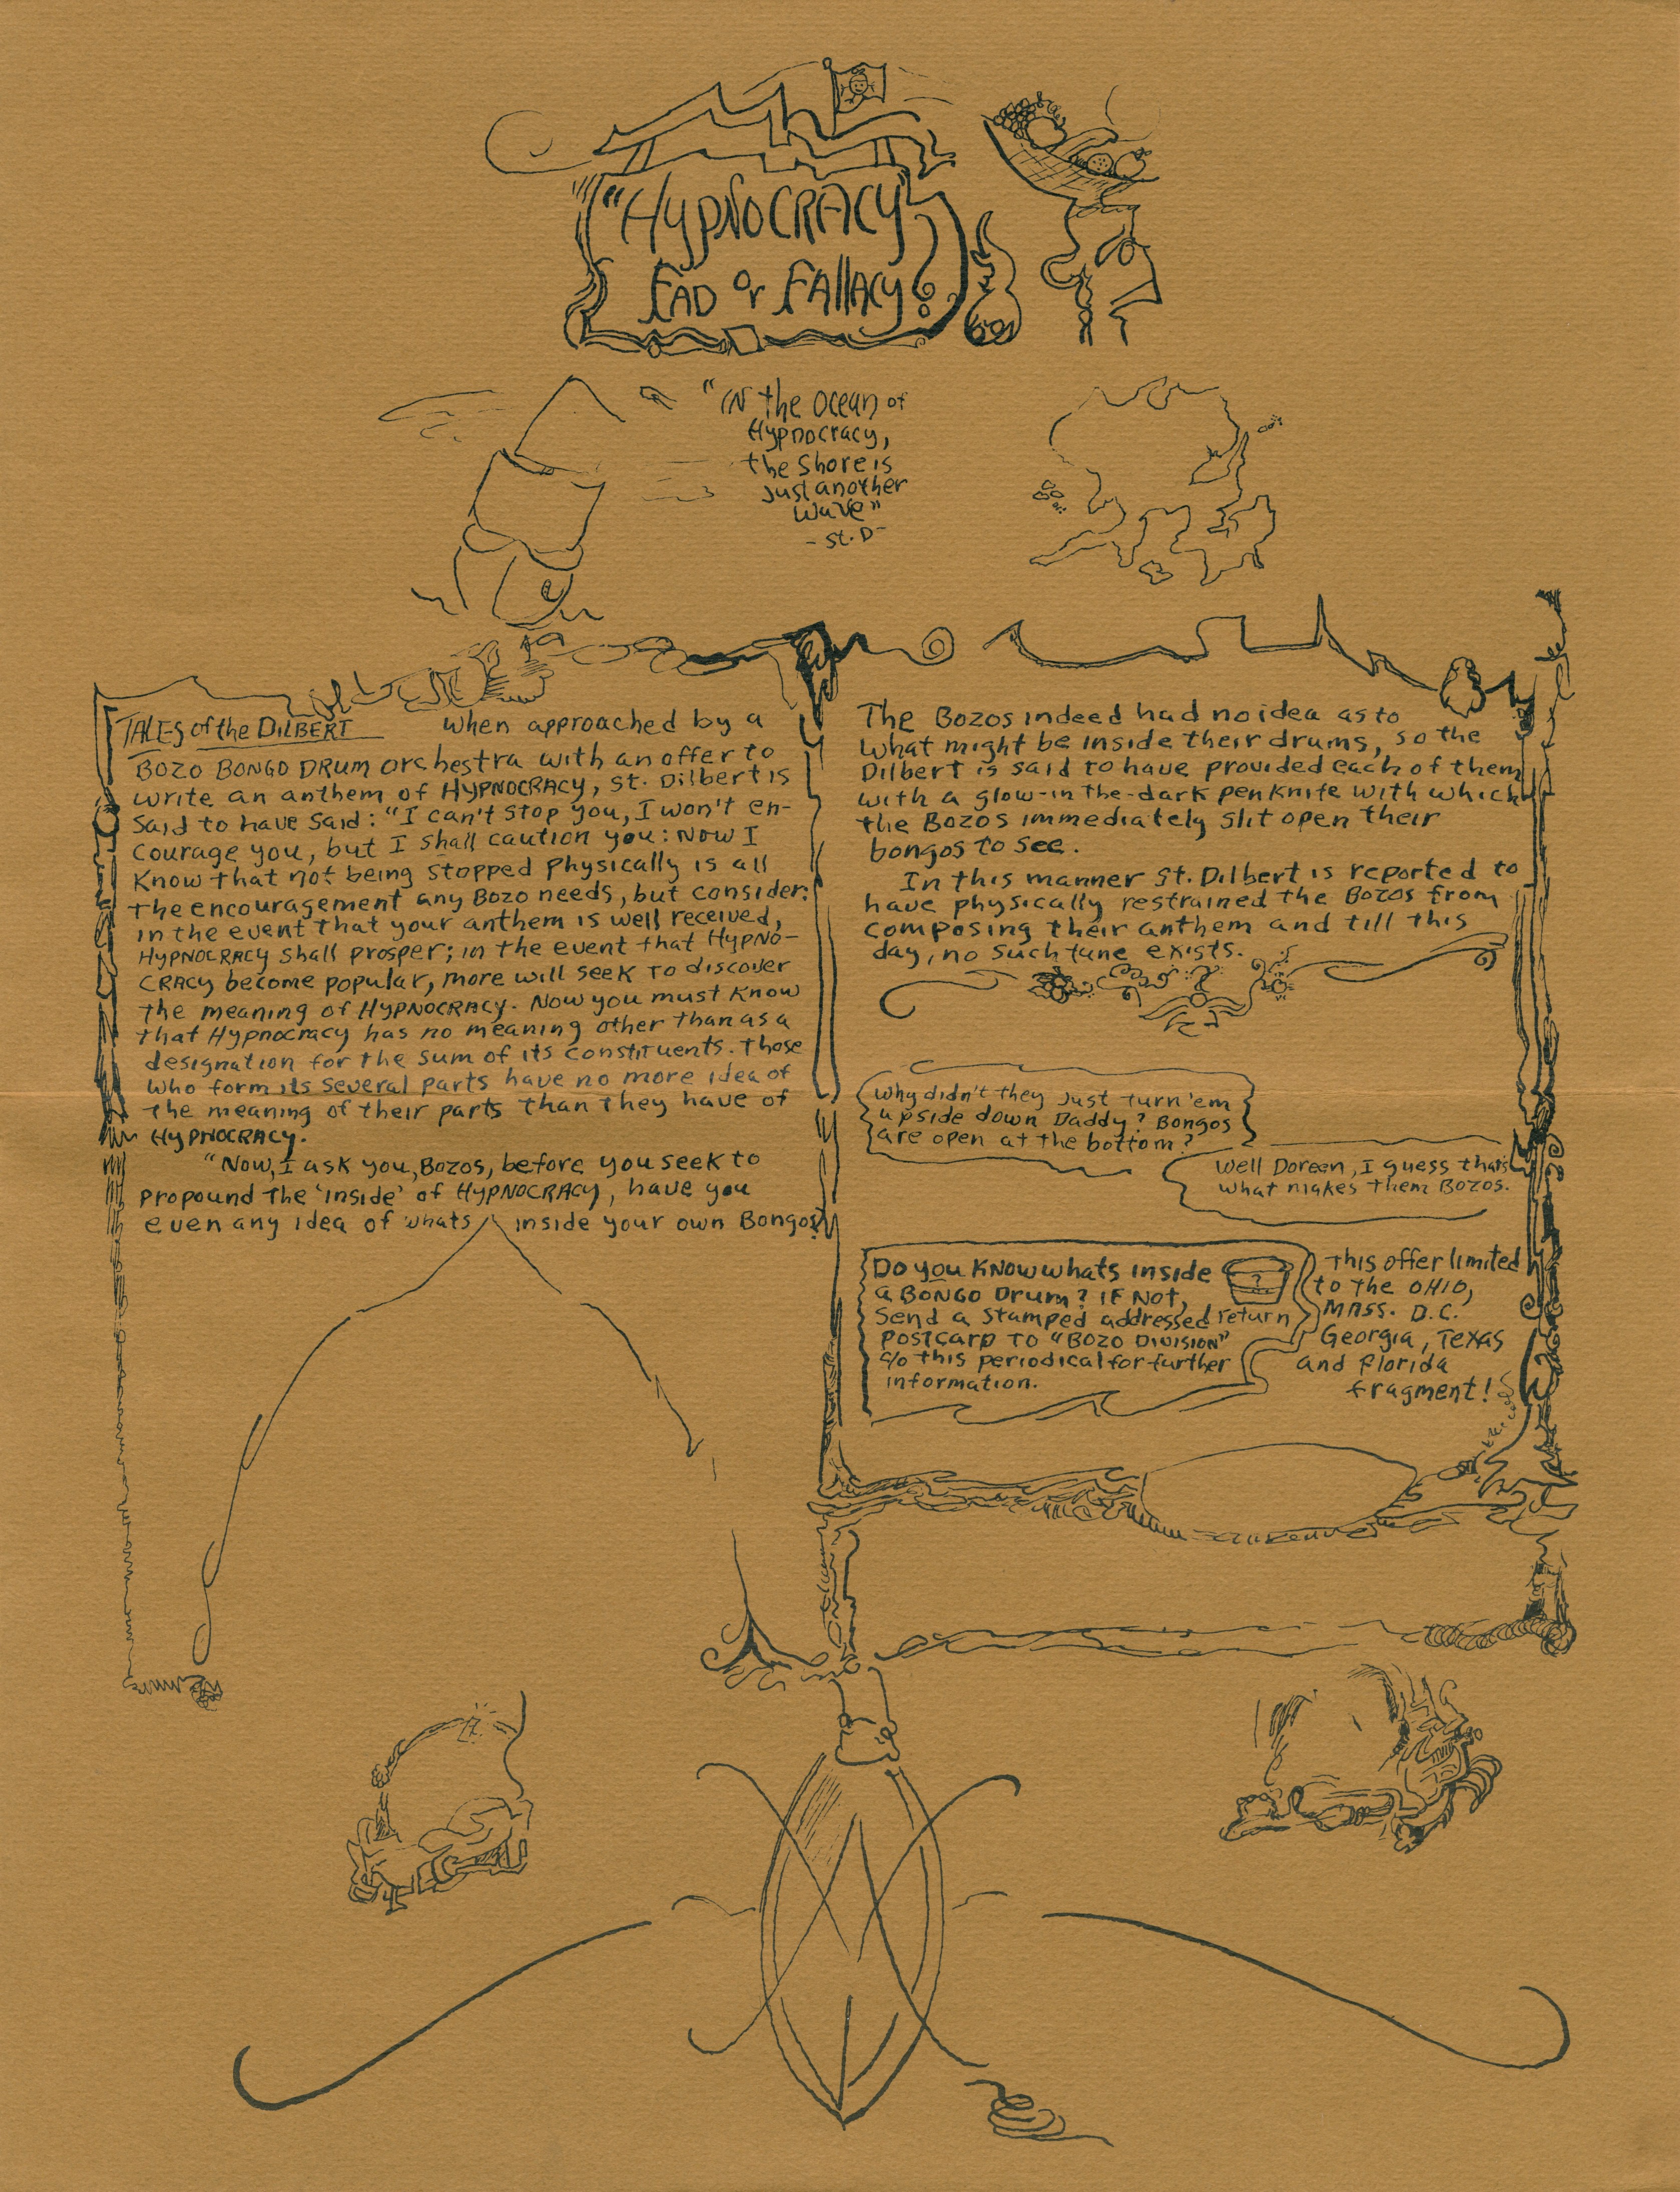 "HYPNOCRACY"
FAD or FAllACY?
"IN the Ocean of
Hypnocracy,
the Shore is
Just another
wave"
- St. D -
TALES of the DILBERT when approached by a
BOZO BONGO DRUM orchestra with an offer to
write an anthem of HYPNOCRACY, St. Dilbert is
Said to have Said: "I can't stop you, I won't en-
courage you, but I shall caution you: NOW I
Know that not being stopped physically is all
the encouragement any Bozo needs, but consider:
in the event that your anthem is well received,
HYPNOCRACY shall prosper; in the event that HYPNO-
CRACY become popular, more will seek to discover
the meaning of HYPNOCRACY. Now you must know
that Hypnocracy has no meaning other than as a
designation for the sum of its constituents. Those
who form its several parts have no more idea of
the meaning of their parts than they have of
HYPNOCRACY.
"Now, I ask you, Bozos, before you seek to
propound the 'inside' of HYPNOCRACY, have you
even any idea of whats inside your own Bongos?"
The Bozos indeed had no idea as to
what might be inside their drums, so the
Dilbert is said to have provided each of them
with a glow-in the-dark penknife with which
the Bozos immediately slit open their
bongos to see.
In this manner St. Dilbert is reported to
have physically restrained the Bozos from
composing their anthem and till this
day, no such tune exists.
Why didn't they Just turn 'em
upside down Daddy? Bongos
are open at the bottom?
Well Doreen, I guess thats
what makes them Bozos.
Do you KNOW whats inside
a BONGO Drum? IF NOT,
Send a Stamped addressed return
POSTCARD TO "BOZO DIVISION"
c/o this periodical for further
information.
?
This offer limited
to the OHIO,
MASS. D.C.
Georgia, Texas
and Florida
fragment!